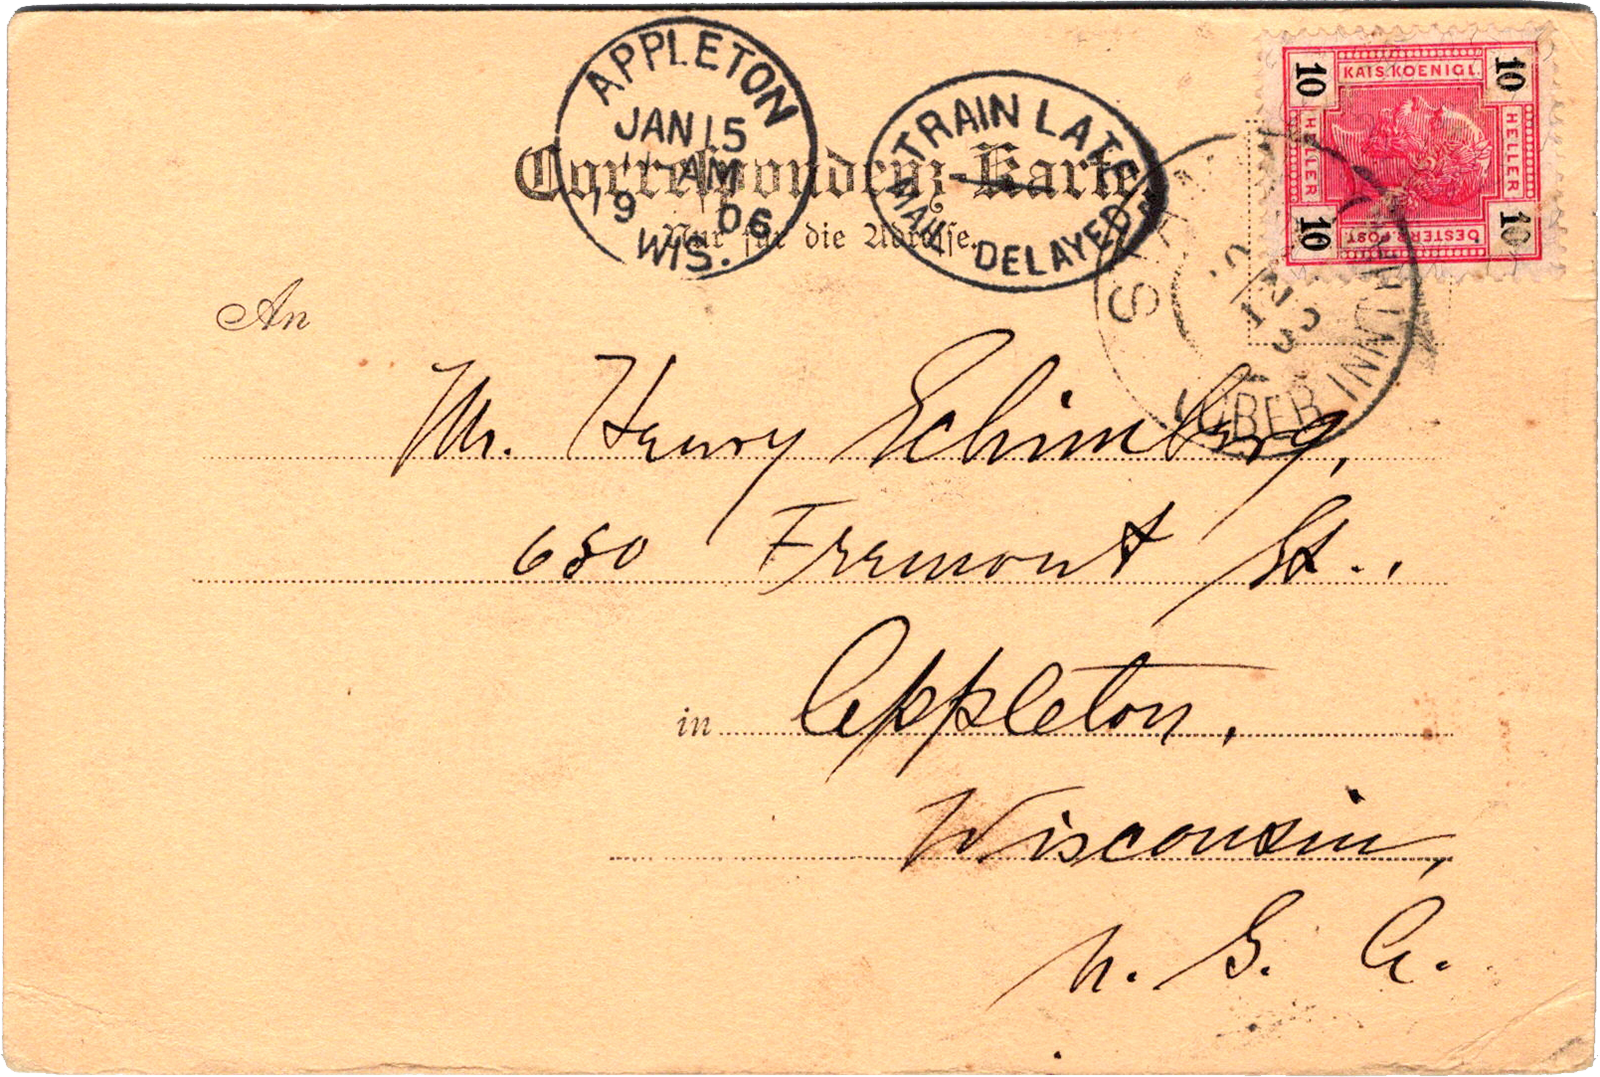 APPLETON
JAN 15
AM
19 06
WIS.
TRAIN LATE
MAIL DELAYED
KAIS. KOENIGL.
10 10
HELLER HELLER
10 10
OESTERR. POST
Correspondenz-Karte
Nur für die Adresse.
ÜBER INN
An
Mr. Henry Schimberg,
680 Fremont St.,
in Appleton,
Wisconsin,
U. S. A.